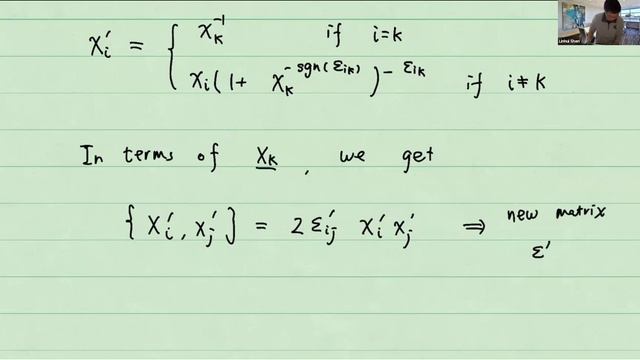 x'_i = { x_k^{-1} if i=k
x_i(1+ x_k^{-sgn(ε_{ik})})^{-ε_{ik}} if i≠k
In terms of x_k, we get
{x'_i, x'_j} = 2ε'_{ij} x'_i x'_j ⇒ new matrix
ε'
Linhui Shen